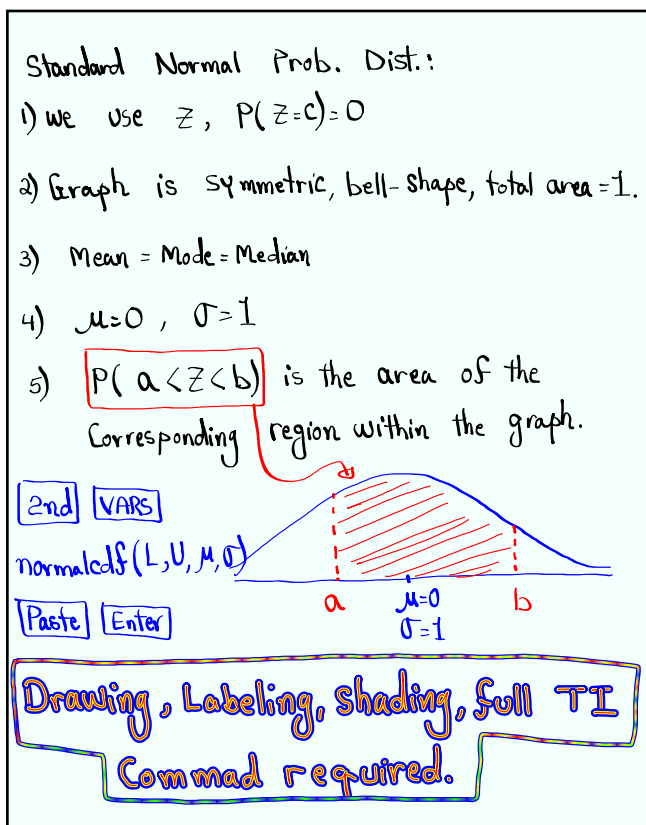 Standard Normal Prob. Dist.:
1) we use Z, P(Z=c)=0
2) Graph is symmetric, bell-shape, total area=1.
3) Mean = Mode = Median
4) μ=0, σ=1
5) P(a<Z<b) is the area of the
Corresponding region within the graph.
2nd VARS
normalcdf(L,U,μ,σ)
Paste Enter
a μ=0 b
σ=1
Drawing, Labeling, Shading, full TI
Commad required.